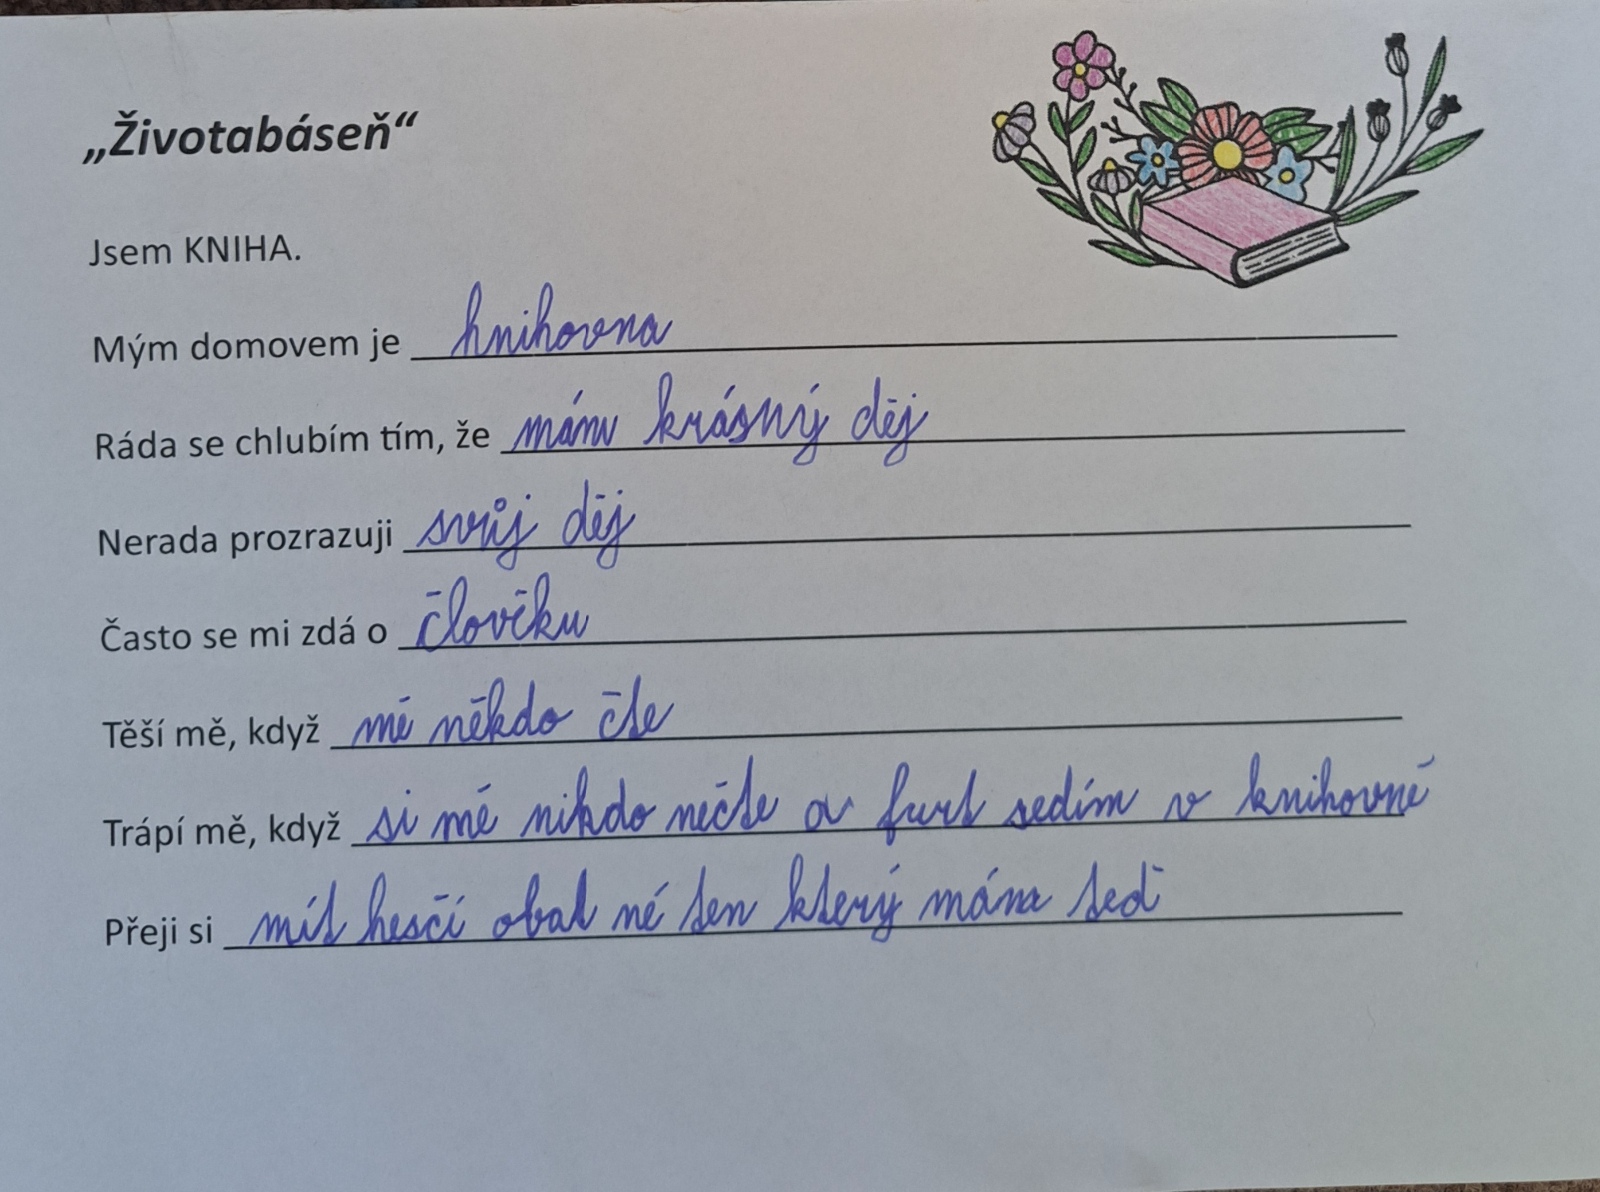 „Životabáseň“
Jsem KNIHA.
Mým domovem je knihovna
Ráda se chlubím tím, že mám krásný děj
Nerada prozrazuji svůj děj
Často se mi zdá o človéku
Těší mě, když mě někdo čte
Trápí mě, když si mě nikdo nečte a furt sedím v knihovně
Přeji si mít hesčí obal né ten který mám teď